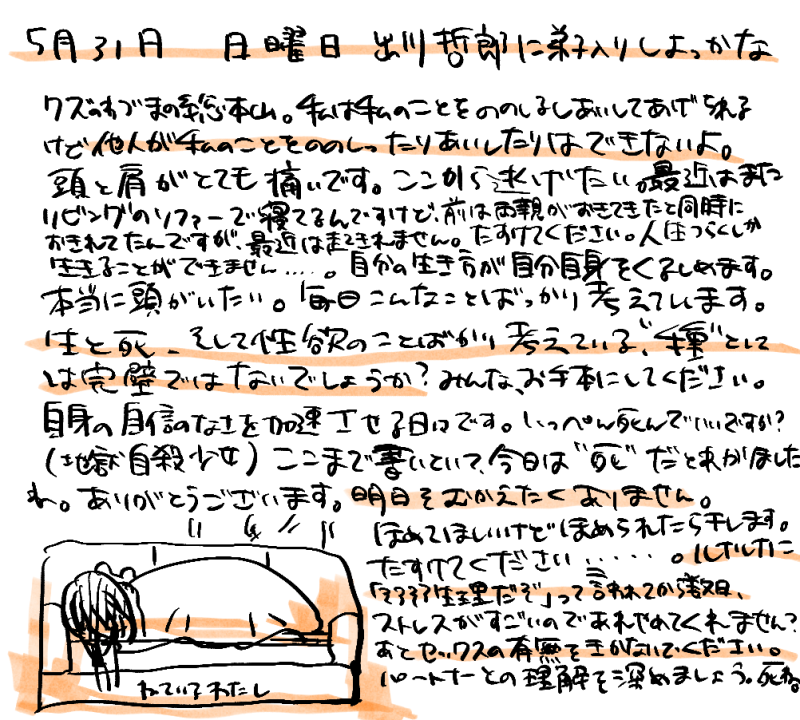 5月31日 日曜日 出川哲郎に弟子入りしよっかな
クズのあづまの総本山。私は私のことをののしるしあいしてあげられる
けど他人が私のことをののしったりあいしたりはできないよ。
頭と肩がとても痛いです。ここから逃げたい。最近はまた
リビングのソファーで寝てるんですけど、前は両親がおきてきたと同時に
おきれてたんですが、最近は起きれません。たすけてください。人生つらくしか
生きることができません……。自分の生き方が自分自身をくるしめます。
本当に頭がいたい。毎日こんなことばっかり考えています。
生と死、そして性欲のことばかり考えている、"種"として
は完璧ではないでしょうか?みんな、お手本にしてください。
自身の自信のなさを加速させる日々です。いっぺん死んでいいですか?
(地獄自殺少女)ここまで書いといて、今日は"死"だとわかりました
ね。ありがとうございます。明日をむかえたくありません。
ほめてほしいけどほめられたら干します。
たすけてください……。ルナルナに
「そろそろ生理だぞ」って言われてから数日、
ストレスがすごいのであれやめてくれません?
あとセックスの有無をきかないでください。
パートナーとの理解を深めましょう。死ね。
ねているわたし